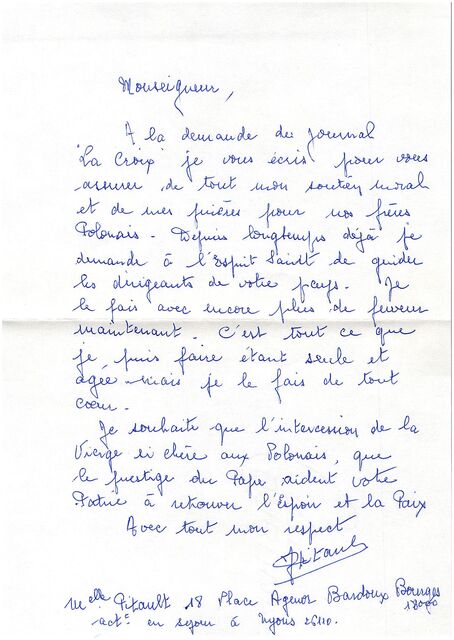 Monseigneur,
A la demande du journal
"La Croix" je vous écris pour vous
assurer de tout mon soutien moral
et de mes prières pour nos frères
Polonais - Depuis longtemps déjà je
demande à l'Esprit Saint de guider
les dirigeants de votre pays. Je
le fais avec encore plus de ferveur
maintenant. C'est tout ce que
je puis faire étant seule et
agée mais je le fais de tout
coeur.
Je souhaite que l'intercession de la
Vierge si chère aux Polonais, que
le prestige du Pape aident votre
Patrie à retrouver l'Espoir et la Paix
Avec tout mon respect
Pitault
Melle Pitault 18 Place Agenor Bardoux Bourges
18000
actt en séjour à Nyons 26110.